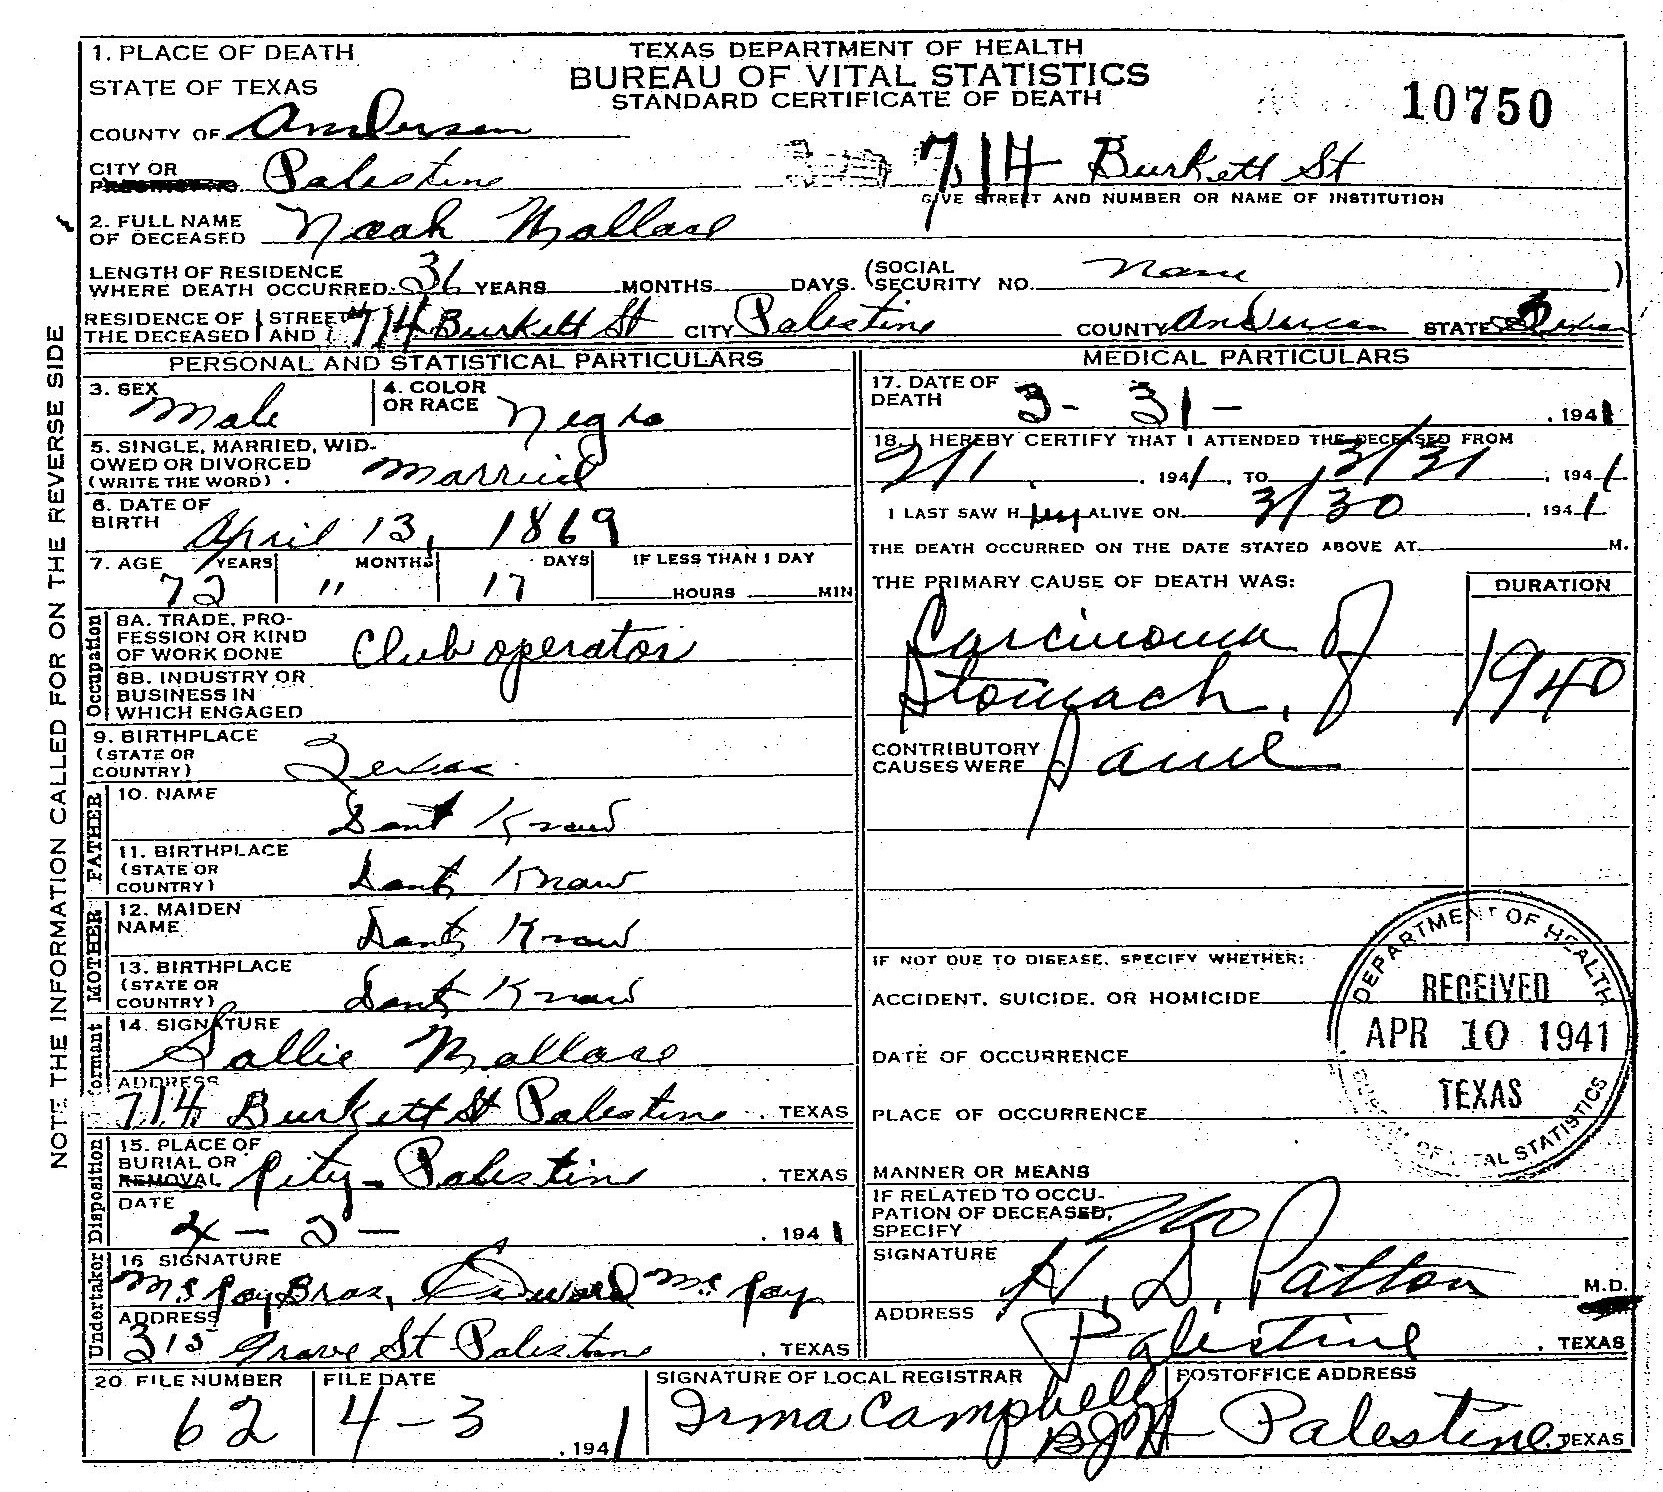 1. PLACE OF DEATH
STATE OF TEXAS
TEXAS DEPARTMENT OF HEALTH
BUREAU OF VITAL STATISTICS
STANDARD CERTIFICATE OF DEATH
10750
COUNTY OF Anderson
CITY OR Palestine 714 Burkett St
GIVE STREET AND NUMBER OR NAME OF INSTITUTION
2. FULL NAME
OF DECEASED Noah Wallace
LENGTH OF RESIDENCE
WHERE DEATH OCCURRED 36 YEARS MONTHS DAYS. (SOCIAL
SECURITY NO. None )
RESIDENCE OF
THE DECEASED
STREET
AND 714 Burkett St CITY Palestine COUNTY Anderson STATE Texas
PERSONAL AND STATISTICAL PARTICULARS
3. SEX Male
4. COLOR
OR RACE Negro
5. SINGLE, MARRIED, WID-
OWED OR DIVORCED
(WRITE THE WORD). Married
6. DATE OF
BIRTH April 13, 1869
7. AGE YEARS MONTHS DAYS IF LESS THAN 1 DAY
72 " 17 HOURS MIN
Occupation
8A. TRADE, PRO-
FESSION OR KIND
OF WORK DONE Club operator
8B. INDUSTRY OR
BUSINESS IN
WHICH ENGAGED
9. BIRTHPLACE
(STATE OR
COUNTRY) Texas
FATHER
10. NAME Dont Know
11. BIRTHPLACE
(STATE OR
COUNTRY) Dont Know
MOTHER
12. MAIDEN
NAME Dont Know
13. BIRTHPLACE
(STATE OR
COUNTRY) Dont Know
ormant
14. SIGNATURE
Sallie Wallace
ADDRESS
714 Burkett St Palestine . TEXAS
Disposition
15. PLACE OF
BURIAL OR
REMOVAL City - Palestine . TEXAS
DATE
4 - 2 - . 1941
Undertaker
16 SIGNATURE
McCoy Bros, Edward McCoy
ADDRESS
315 Grave St Palestine . TEXAS
MEDICAL PARTICULARS
17. DATE OF
DEATH 3 - 31 - . 1941
18. I HEREBY CERTIFY THAT I ATTENDED THE DECEASED FROM
2/1 . 1941, TO 3/31 . 1941
I LAST SAW H im ALIVE ON 3/30 . 1941
THE DEATH OCCURRED ON THE DATE STATED ABOVE AT M.
THE PRIMARY CAUSE OF DEATH WAS: DURATION
Carcinoma of
Stomach. 1940
CONTRIBUTORY
CAUSES WERE Same
IF NOT DUE TO DISEASE, SPECIFY WHETHER:
ACCIDENT, SUICIDE, OR HOMICIDE
DATE OF OCCURRENCE
PLACE OF OCCURRENCE
MANNER OR MEANS
DEPARTMENT OF HEALTH
RECEIVED
APR 10 1941
TEXAS
OF VITAL STATISTICS
IF RELATED TO OCCU-
PATION OF DECEASED,
SPECIFY no
SIGNATURE H. D. Patton M.D.
ADDRESS Palestine . TEXAS
20 FILE NUMBER
62
FILE DATE
4 - 3 . 1941
SIGNATURE OF LOCAL REGISTRAR
Irma Campbell
BJH
POSTOFFICE ADDRESS
Palestine . TEXAS
NOTE THE INFORMATION CALLED FOR ON THE REVERSE SIDE